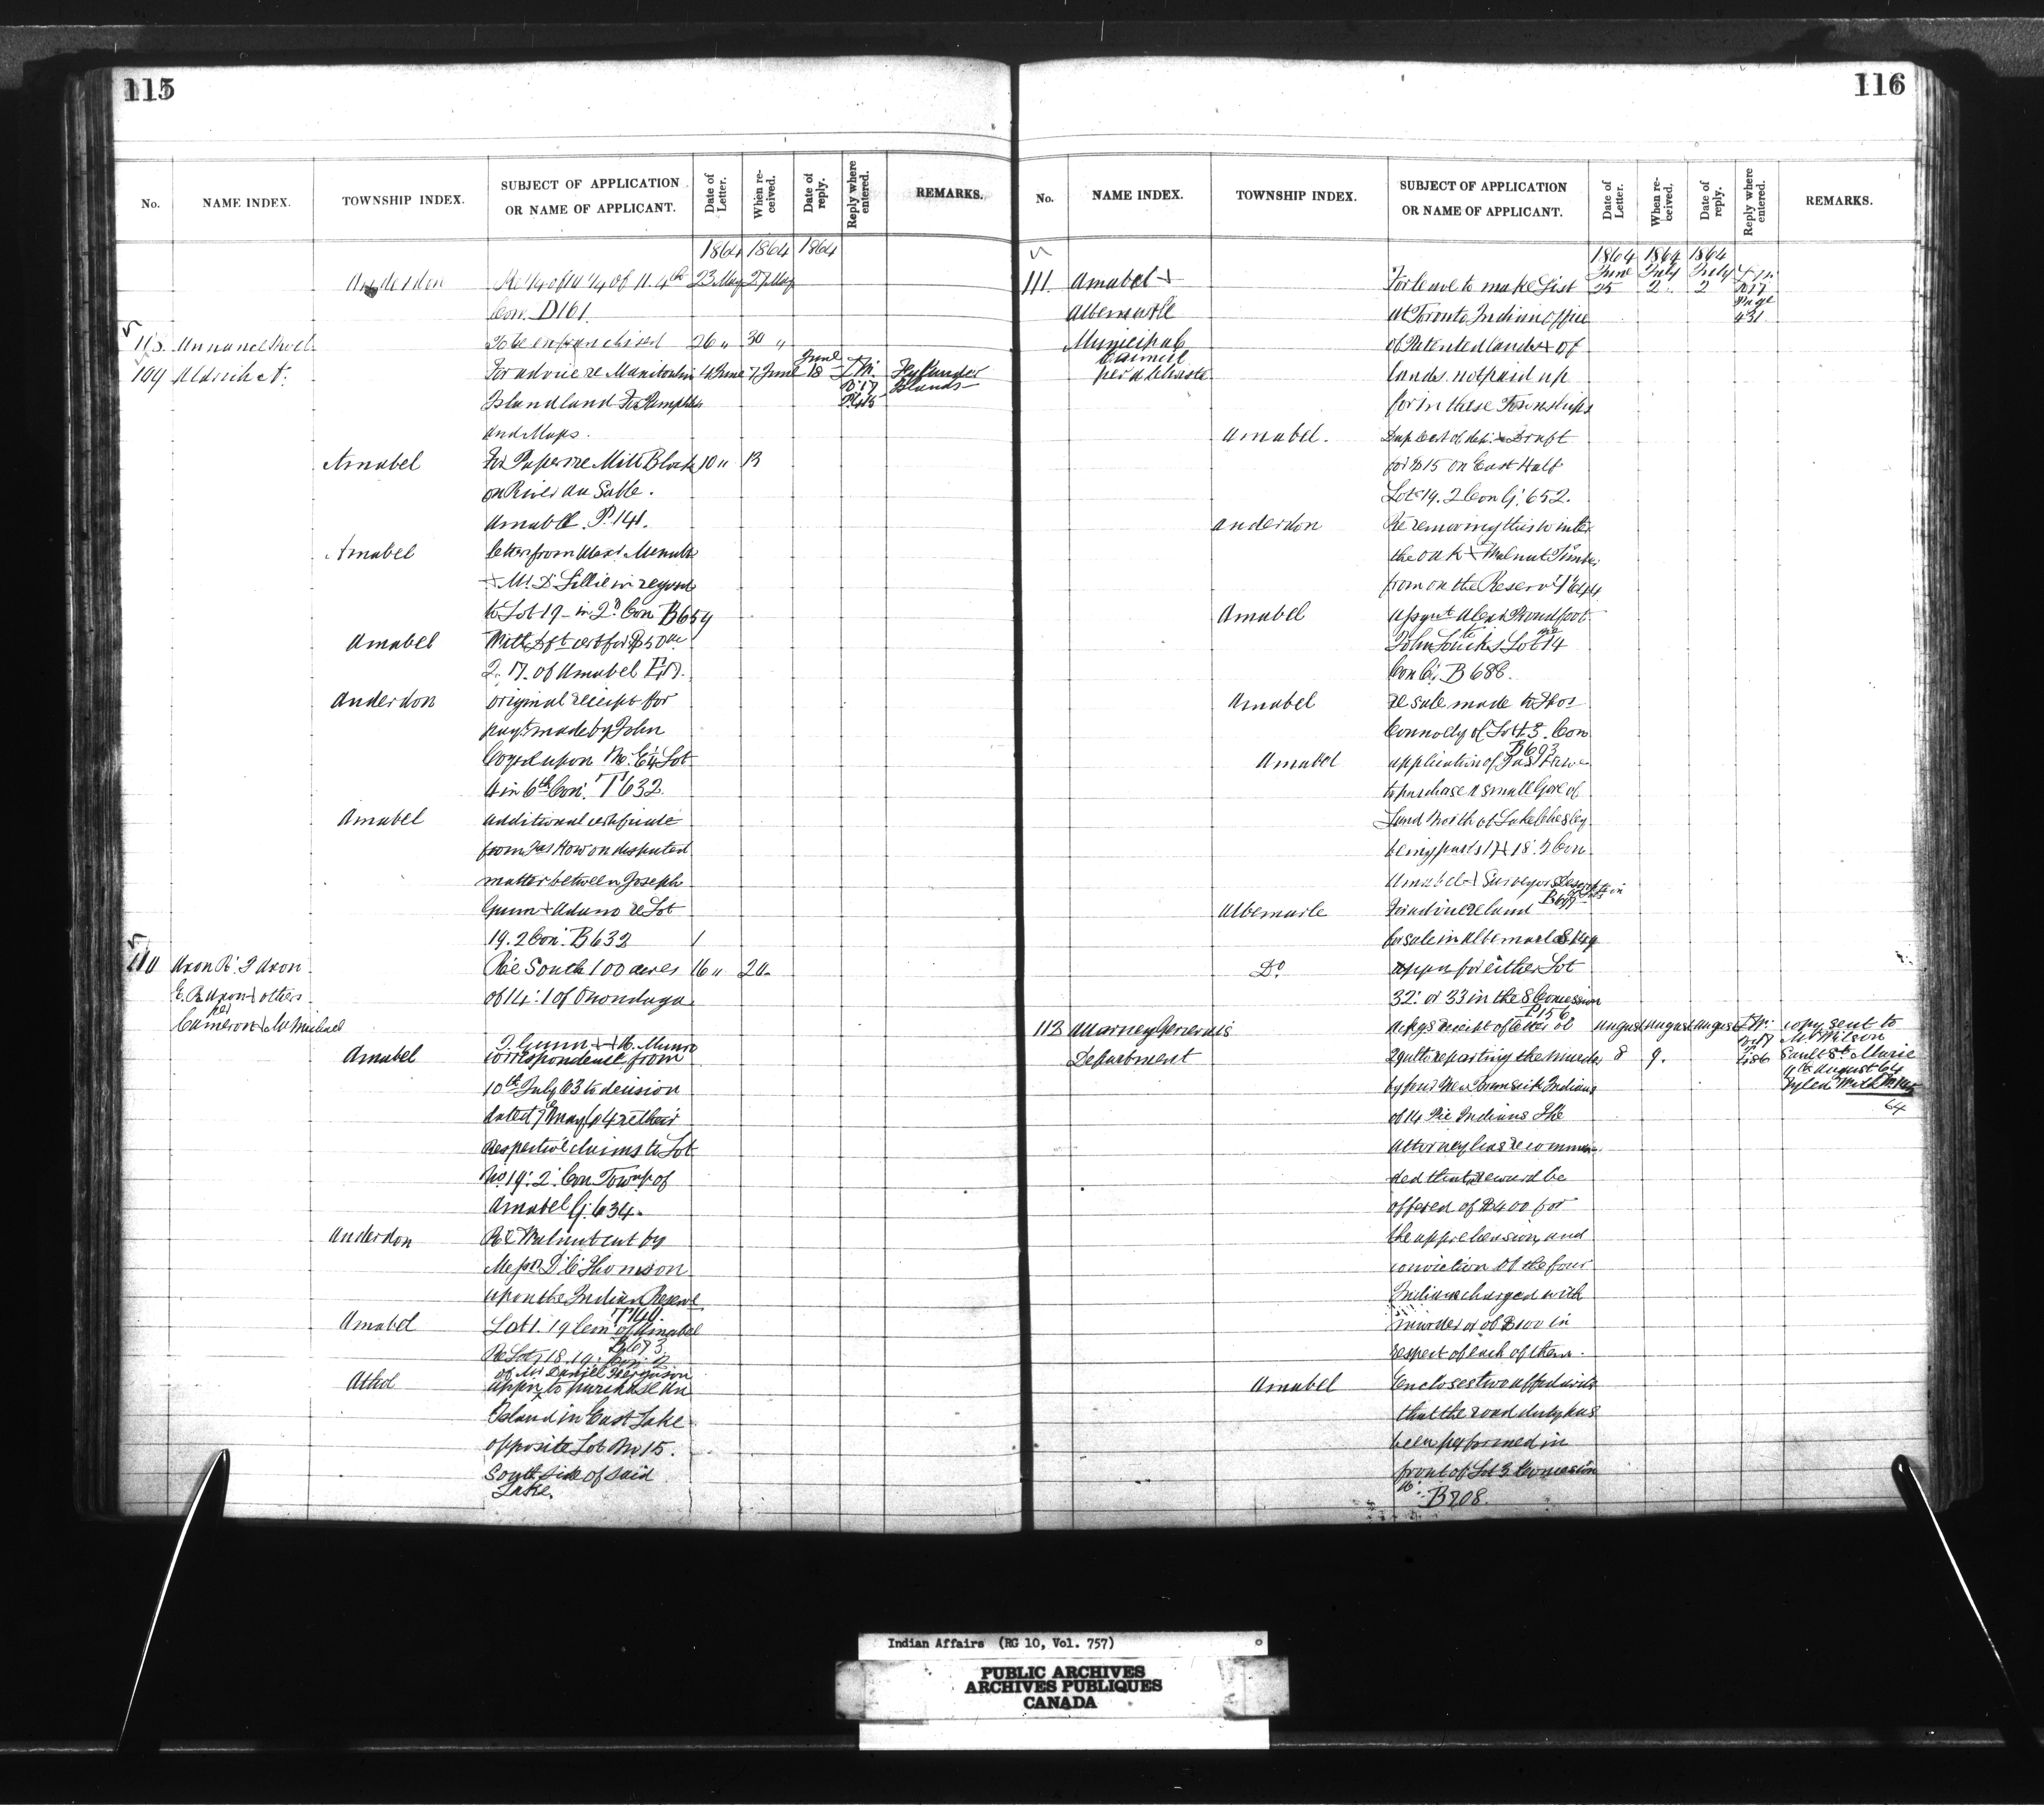 115
No. NAME INDEX. TOWNSHIP INDEX. SUBJECT OF APPLICATION OR NAME OF APPLICANT. Date of Letter. When re-ceived. Date of reply. Reply where entered. REMARKS.
1864 1864 1864
Anderdon of 11. 4th 23 May 27 May
Con. D161.
To be enfranchised 26 " 30 "
109 Aldrich A. For advice re Manitoulin 4 June 7 June June 18 L.M. Fyl under
Island land For Pamphlet No 17 Islands
and Maps. P. 415
Amabel For Paper re Mill Block 10 " 13
on River au Sable.
Amabel. P. 141.
Amabel letters from
& M. D. Lillie in regard
to Lot 19 - in 2d Con B654
Amabel With Dft cert for $50
2. 17. of Amabel
Anderdon original receipt for
payt. made by John
upon N. E 1/4 Lot
4 in 6th Con. T632
Amabel additional certificate
from Jas How on disputed
matter between Joseph
Gunn & Adams re Lot
19. 2 Con. B632
110 Axon R. J Axon Re South 100 acres 16 " 20.
E. B Axon & others of 14. 1 of Onondaga
per
Cameron & McMichael
J. Gunn & A. Munro
Amabel correspondence from
10th July 63 to decision
dated 7 May 64 re their
respective claims to Lot
No 19. 2. Con Townsp of
Amabel G. 634.
Anderdon Re Walnut cut by
Messrs D. C Thomson
upon the Indian Reserve
T 140.
Amabel Lot 1. 19 Con of Amabel
B 673
Re Lots 18. 19. Con: 2
of Mr Daniel Ferguson
Athol appn to purchase an
Island in East Lake
opposite Lot No 15.
South side of said
Lake.
116
No. NAME INDEX. TOWNSHIP INDEX. SUBJECT OF APPLICATION OR NAME OF APPLICANT. Date of Letter. When re-ceived. Date of reply. Reply where entered. REMARKS.
1864 1864 1864
111. Amabel & For leave to make List June 25 July 2. July 2 L.M.
Albemarle at Toronto Indian Office No 17
Municipal of Patented lands & of Page
Council lands not paid up 431
per for in these Townships
Amabel. Dup Cert of dep. & Draft
for $15 on East Half
Lot 19. 2 Con G. 652.
Anderdon Re removing this winter
the oak & Walnut Timber
from on the Reserve
Amabel assgnt Alexr Proudfoot
to
John Lot 14
Con C. B 688.
Amabel re sale made to Thos
Connolly of Lot 3. Con
B693
Amabel application of Jas
to purchase a small Gore of
Land North of Lake Chesley
being parts 17 & 18. 2 Con
Amabel & Surveyors
B697
Albemarle For advice re land
for sale in Albemarle S149
Do appn for either Lot
32. or 33 in the 8 Concession
P156
112 Attorney Generals Ackgs receipt of letter of August August August L.M. copy sent to
Department 2 ult reporting the murder 8 9. No 17 Mr Wilson
by four New Brunswick Indians 486 Sault St. Marie
of 14 Pic Indians The 11th August 64
Attorney has recommen- Fyled with
ded that reward be 64
offered of $400 for
the apprehension and
conviction of the four
Indians charged with
murder or of $100 in
respect of each of them.
Amabel Encloses two affidavits
that the road duty has
been performed in
front of Lot 3 Concession
B708.
Indian Affairs (RG 10, Vol. 757)
PUBLIC ARCHIVES
ARCHIVES PUBLIQUES
CANADA